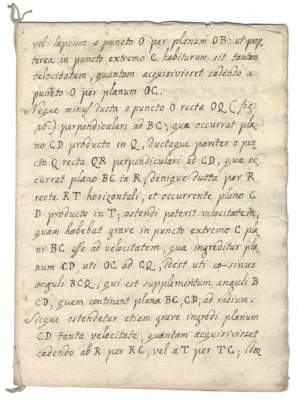 vel lapsum a puncto O per planum OB: ut prop,
terea in puncto extremo C habiturum sit tantam
velocitatem, quantam acquisivisset cadendo a
puncto O per planum OC.
Neque minus ducta a puncto O recta OQ (fig:
) perpendiculari ad BC; quæ occurrat pla,
no CD producto in Q, ductaque pariter a pun,
cto Q recta QR perpendiculari ad CD, quæ oc,
currat plano BC in R; denique ducta per R
recta RT horizontali, et occurrente plano C
D producto in T; ostendi poterit velocitatem,
quam habebat grave in puncto extremo C pla,
ni BC esse ad velocitatem, qua ingreditur pla,
num CD, uti OC ad CQ, idest uti co-sinus
anguli BCQ, qui est supplementum anguli B
CD, quem continent plana BC, CD, ad radium.
Sicque ostendetur etiam grave ingredi planum
CD tanta velocitate, quantam acquisivisset
cadendo ab R per RC, vel a T per TC; ideo